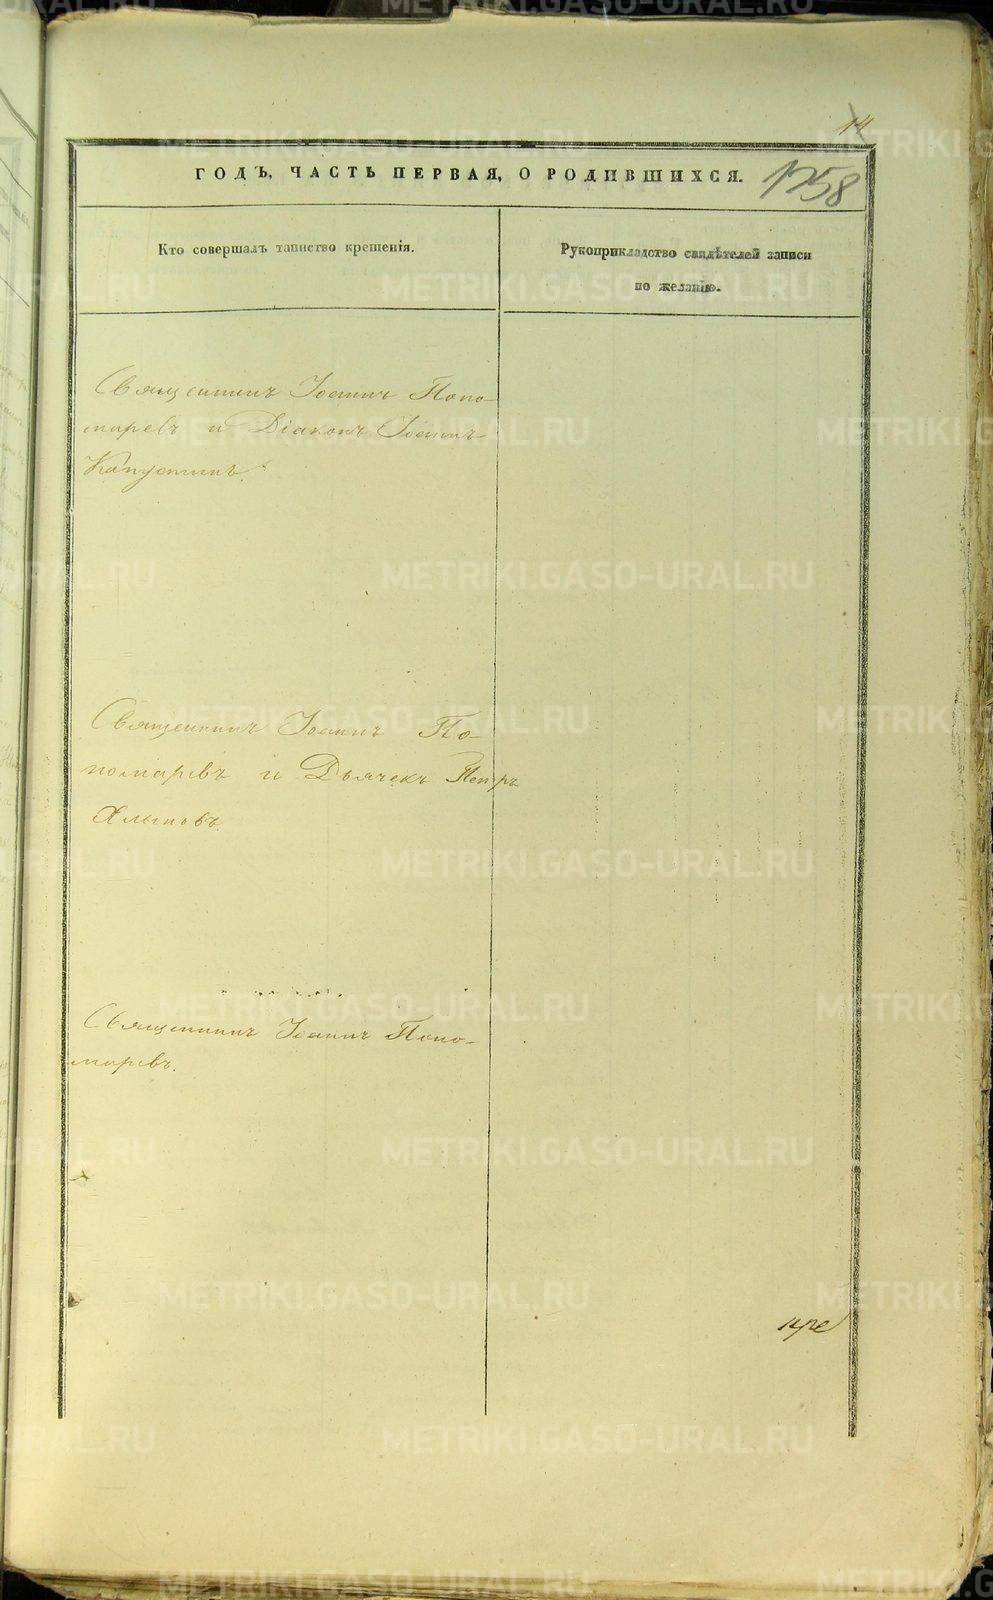 14
ГОДЪ, ЧАСТЬ ПЕРВАЯ, О РОДИВШИХСЯ.
1758
Кто совершалъ таинство крещенія.
Рукоприкладство свидѣтелей записи
по желанію.
Священникъ Іоаннъ Поно-
маревъ и Діаконъ Іоаннъ
Капустинъ.
Священникъ Іоаннъ По-
номаревъ и Дьячекъ Петръ
Хлыновъ
Священникъ Іоаннъ Поно-
маревъ.
METRIKI.GASO-URAL.RU